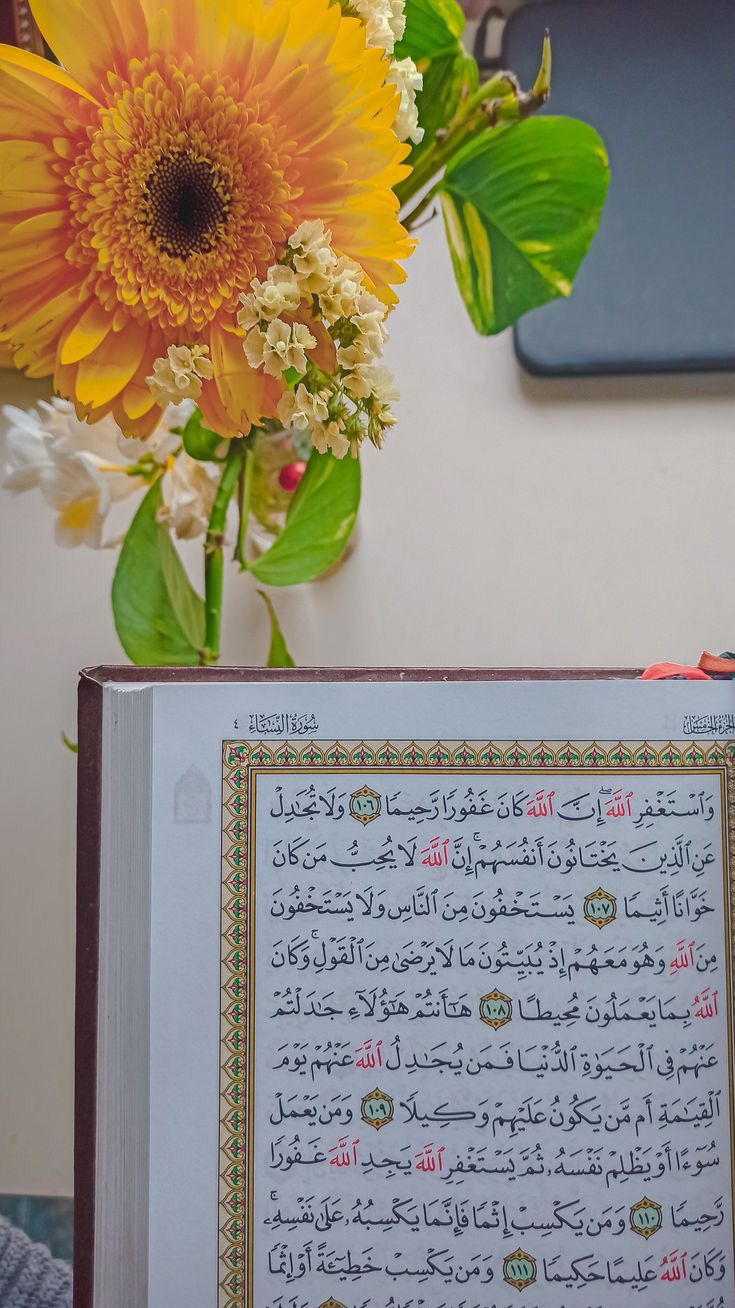 سُورَةُ النِّسَاءِ ٤
الجزء الخامس
وَٱسْتَغْفِرِ ٱللَّهَۖ إِنَّ ٱللَّهَ كَانَ غَفُورًا رَّحِيمًا ١٠٦ وَلَا تُجَٰدِلْ
عَنِ ٱلَّذِينَ يَخْتَانُونَ أَنفُسَهُمْۚ إِنَّ ٱللَّهَ لَا يُحِبُّ مَن كَانَ
خَوَّانًا أَثِيمًا ١٠٧ يَسْتَخْفُونَ مِنَ ٱلنَّاسِ وَلَا يَسْتَخْفُونَ
مِنَ ٱللَّهِ وَهُوَ مَعَهُمْ إِذْ يُبَيِّتُونَ مَا لَا يَرْضَىٰ مِنَ ٱلْقَوْلِۚ وَكَانَ
ٱللَّهُ بِمَا يَعْمَلُونَ مُحِيطًا ١٠٨ هَٰٓأَنتُمْ هَٰٓؤُلَآءِ جَٰدَلْتُمْ
عَنْهُمْ فِي ٱلْحَيَوٰةِ ٱلدُّنْيَا فَمَن يُجَٰدِلُ ٱللَّهَ عَنْهُمْ يَوْمَ
ٱلْقِيَٰمَةِ أَم مَّن يَكُونُ عَلَيْهِمْ وَكِيلًا ١٠٩ وَمَن يَعْمَلْ
سُوٓءًا أَوْ يَظْلِمْ نَفْسَهُۥ ثُمَّ يَسْتَغْفِرِ ٱللَّهَ يَجِدِ ٱللَّهَ غَفُورًا
رَّحِيمًا ١١٠ وَمَن يَكْسِبْ إِثْمًا فَإِنَّمَا يَكْسِبُهُۥ عَلَىٰ نَفْسِهِۦۚ
وَكَانَ ٱللَّهُ عَلِيمًا حَكِيمًا ١١١ وَمَن يَكْسِبْ خَطِيٓـَٔةً أَوْ إِثْمًا